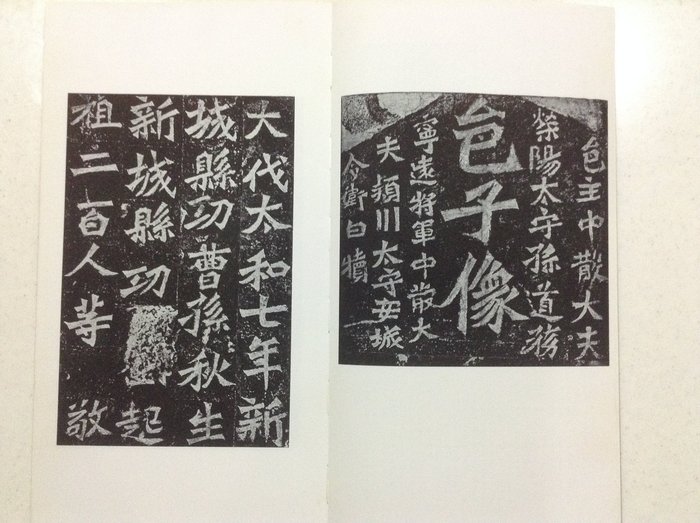 邑主中散大夫
滎陽太守孫道務
邑子像
寧遠將軍中散大
夫潁川太守安城
令衛白犢
大代太和七年新
城縣功曹孫秋生
新城縣功 起
祖二百人等敬